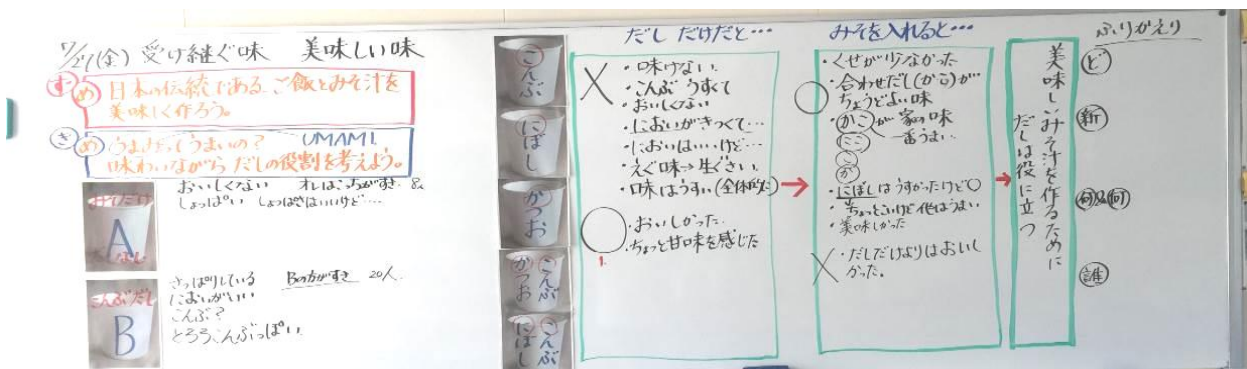 7/27(金) 受け継ぐ味 美味しい味
す
め
日本の伝統である ご飯とみそ汁を
美味しく作ろう。
き
め
うまみってうまいの? UMAMI
味わいながら だしの役割を考えよう。
みそだけ
A
なし
おいしくない オレはこっちがすき
しょっぱい しょっぱさはいいけど…
こんぶだし
B
さっぱりしている Bの方がすき 20人
においがいい
こんぶ?
とろろこんぶっぽい
こんぶ
にぼし
かつお
かつお こんぶ
にぼし こんぶ
だし だけだと…
・味けない
・こんぶ うすくて
・おいしくない
・においがきつくて…
・においはいいけど…
・えぐ味→生ぐさい
・味はうすい(全体的に)
・おいしかった
・ちょっと甘味を感じた
みそを入れると…
・くせが少なかった
・合わせだし(から)が
ちょうどよい味
・かこが 家の味
ここ 一番うまい
こ
か
・にぼしはうすかったけど
・美味しかった
・だしだけよりはおいし
かった。
美味しいみそ汁を作るために
だしは役に立つ
ふりかえり
ど
新
誰